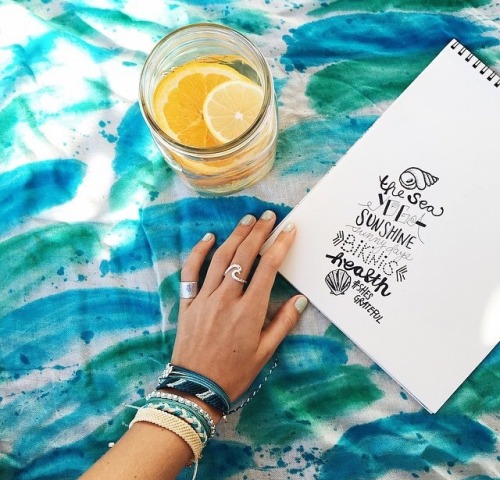 the Sea
SUNSHINE
sunny days
BIKINIS
health
#SHES
GRATEFUL